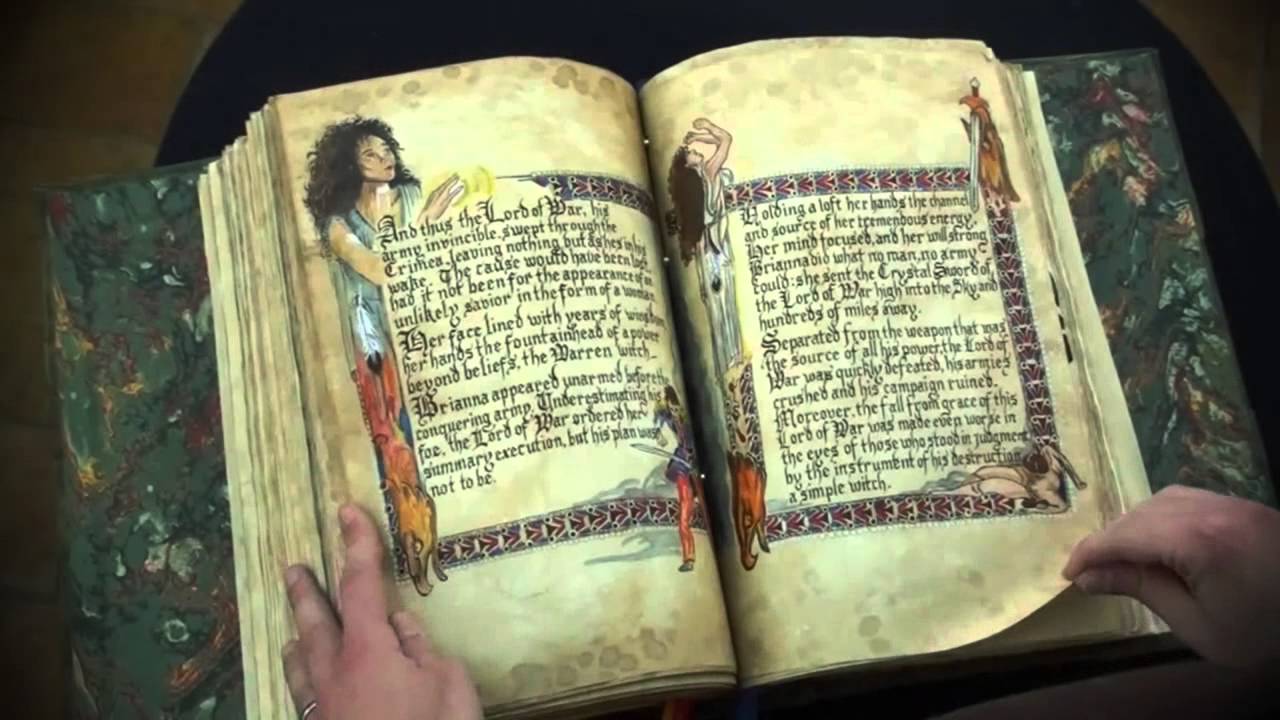 And thus the Lord of War, his
army invincible, swept through the
Crimea, leaving nothing but ashes in his
wake. The cause would have been lost
had it not been for the appearance of an
unlikely savior in the form of a woman.
Her face lined with years of wisdom
her hands the fountainhead of a power
beyond beliefs, the Warren witch
Brianna appeared unarmed before the
conquering army. Underestimating his
foe, the Lord of War ordered her
summary execution, but his plan was
not to be.
Holding a loft her hands the channel
and source of her tremendous energy,
Her mind focused, and her will strong
Brianna did what no man, no army
could: she sent the Crystal Sword of
the Lord of War high into the Sky and
hundreds of miles away.
Separated from the weapon that was
the source of all his power, the Lord of
War was quickly defeated, his armies
crushed and his campaign ruined.
Moreover, the fall from grace of this
Lord of War was made even worse in
the eyes of those who stood in judgment
by the instrument of his destruction
a simple witch.